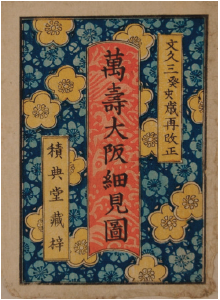 文久三癸亥歳再改正
萬壽大阪細見圖
積典堂藏梓